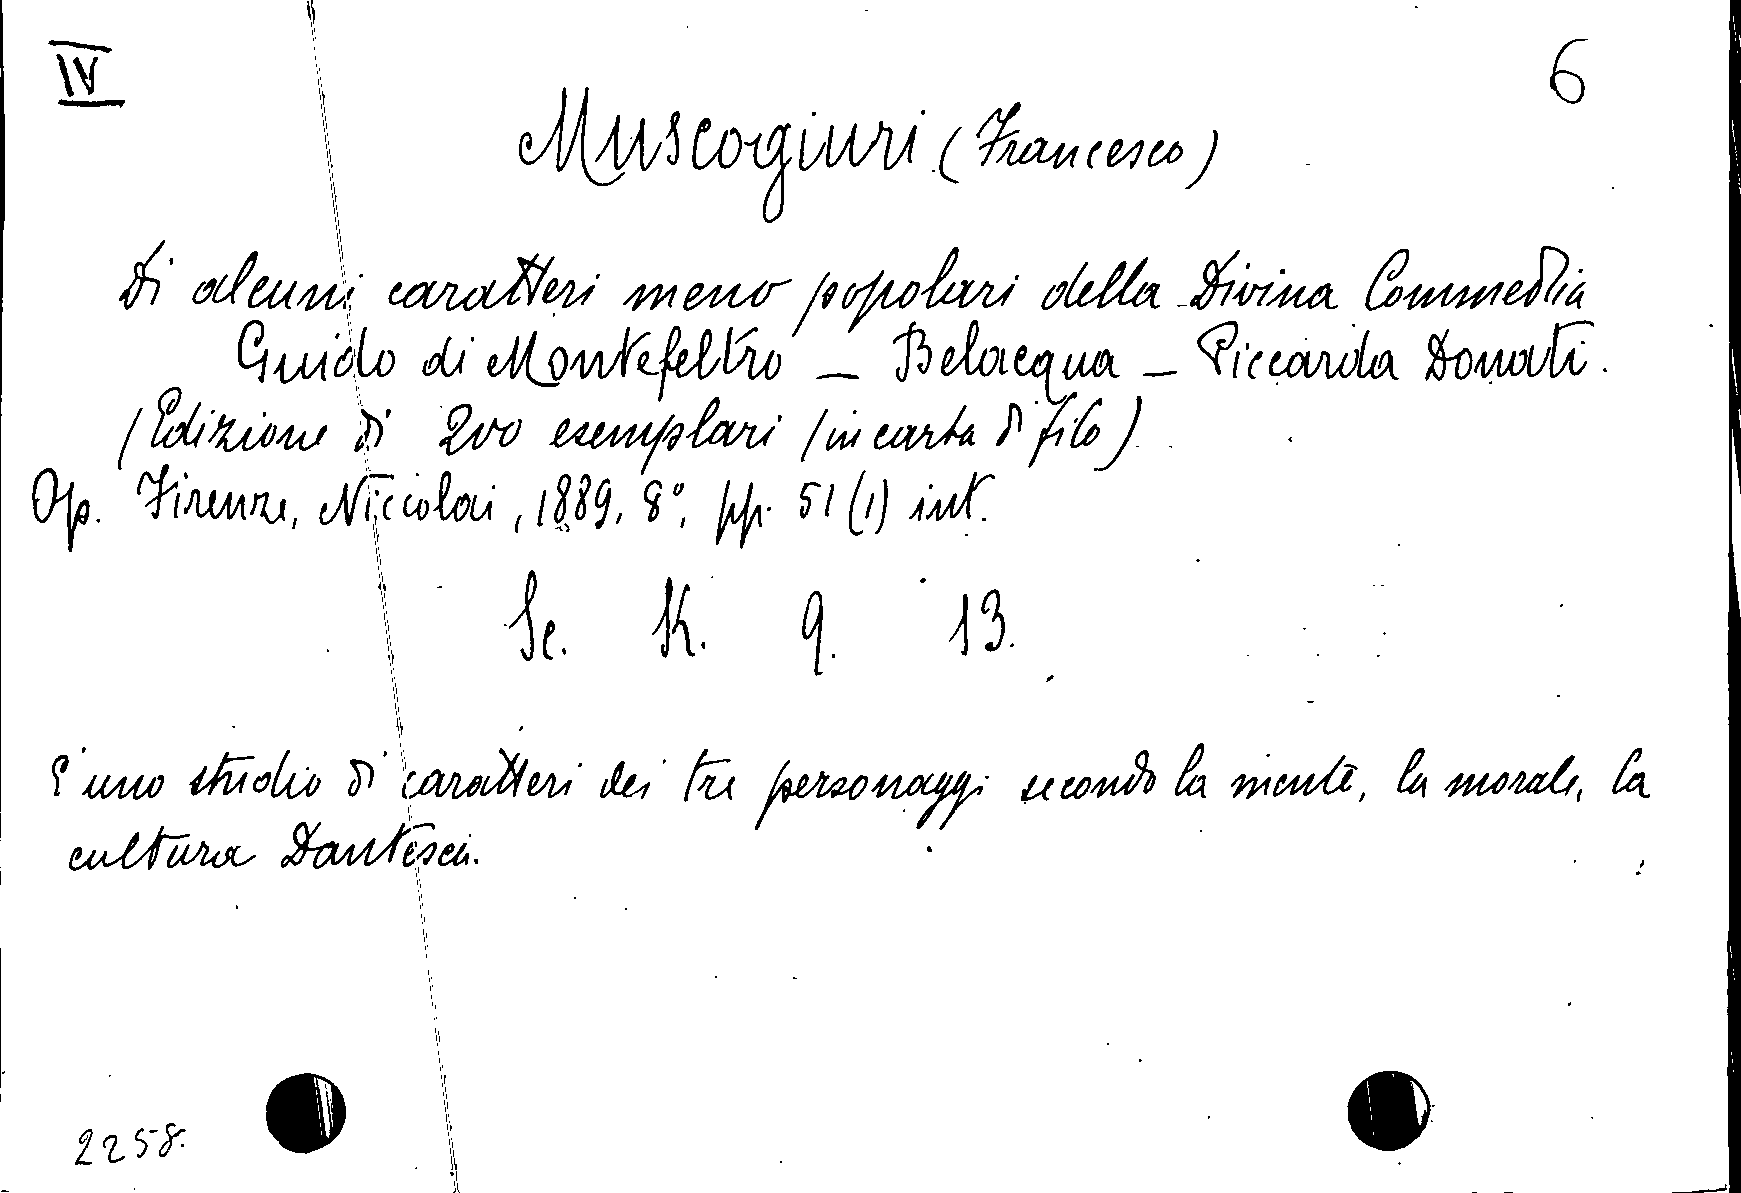 IV
6
Muscogiuri (Francesco)
Di alcuni caratteri meno popolari della Divina Commedia
Guido di Montefeltro — Belacqua — Piccarda Donati.
(Edizione di 200 esemplari (in carta di filo)
Op. Firenze, Niccolai, 1889, 8°, pp. 51 (1) int.
Se. K. 9. 13.
E' uno studio di caratteri dei tre personaggi secondo la mente, la morale, la
cultura Dantesca.
2258.